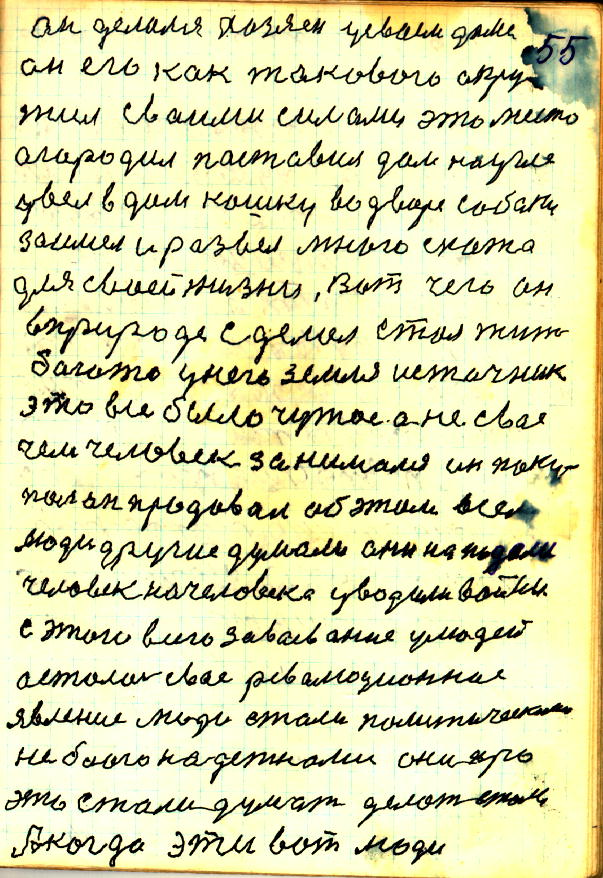 он делался хозяен усваем доме
55
он его как токового окру-
жил сваими силами это место
огородил паставил дом на угле
увел в дом кошку во дворе собаку
заимел и развел много скота
для своей жизни, Вот чего он
в природе сделал стал жить
богато у него земля источник
это все было чужое а не свае
чем человек занимался он поку-
пал он продовал об этом всем
люди другие думали они нападали
человек на человека уводили войны
с этого всего завоевание у людей
осталось свае революционное
явление люди стали политическими
не бога надежнами они про
это стали думат делат
А когда эти вот люди